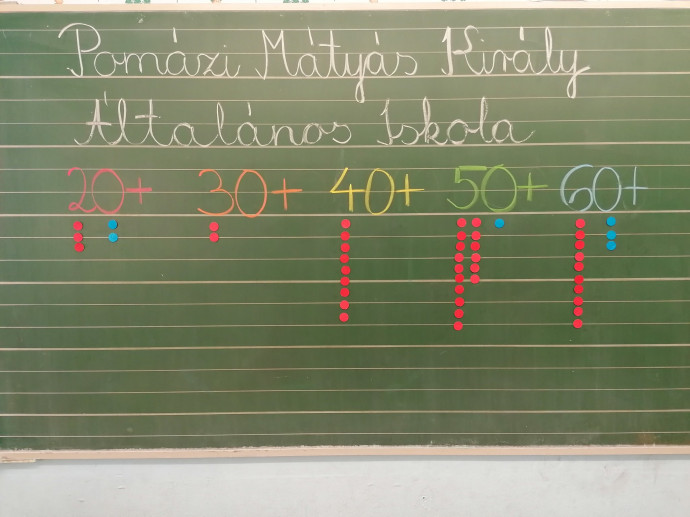 Pomázi Mátyás Király
Általános Iskola
20+ 30+ 40+ 50+ 60+